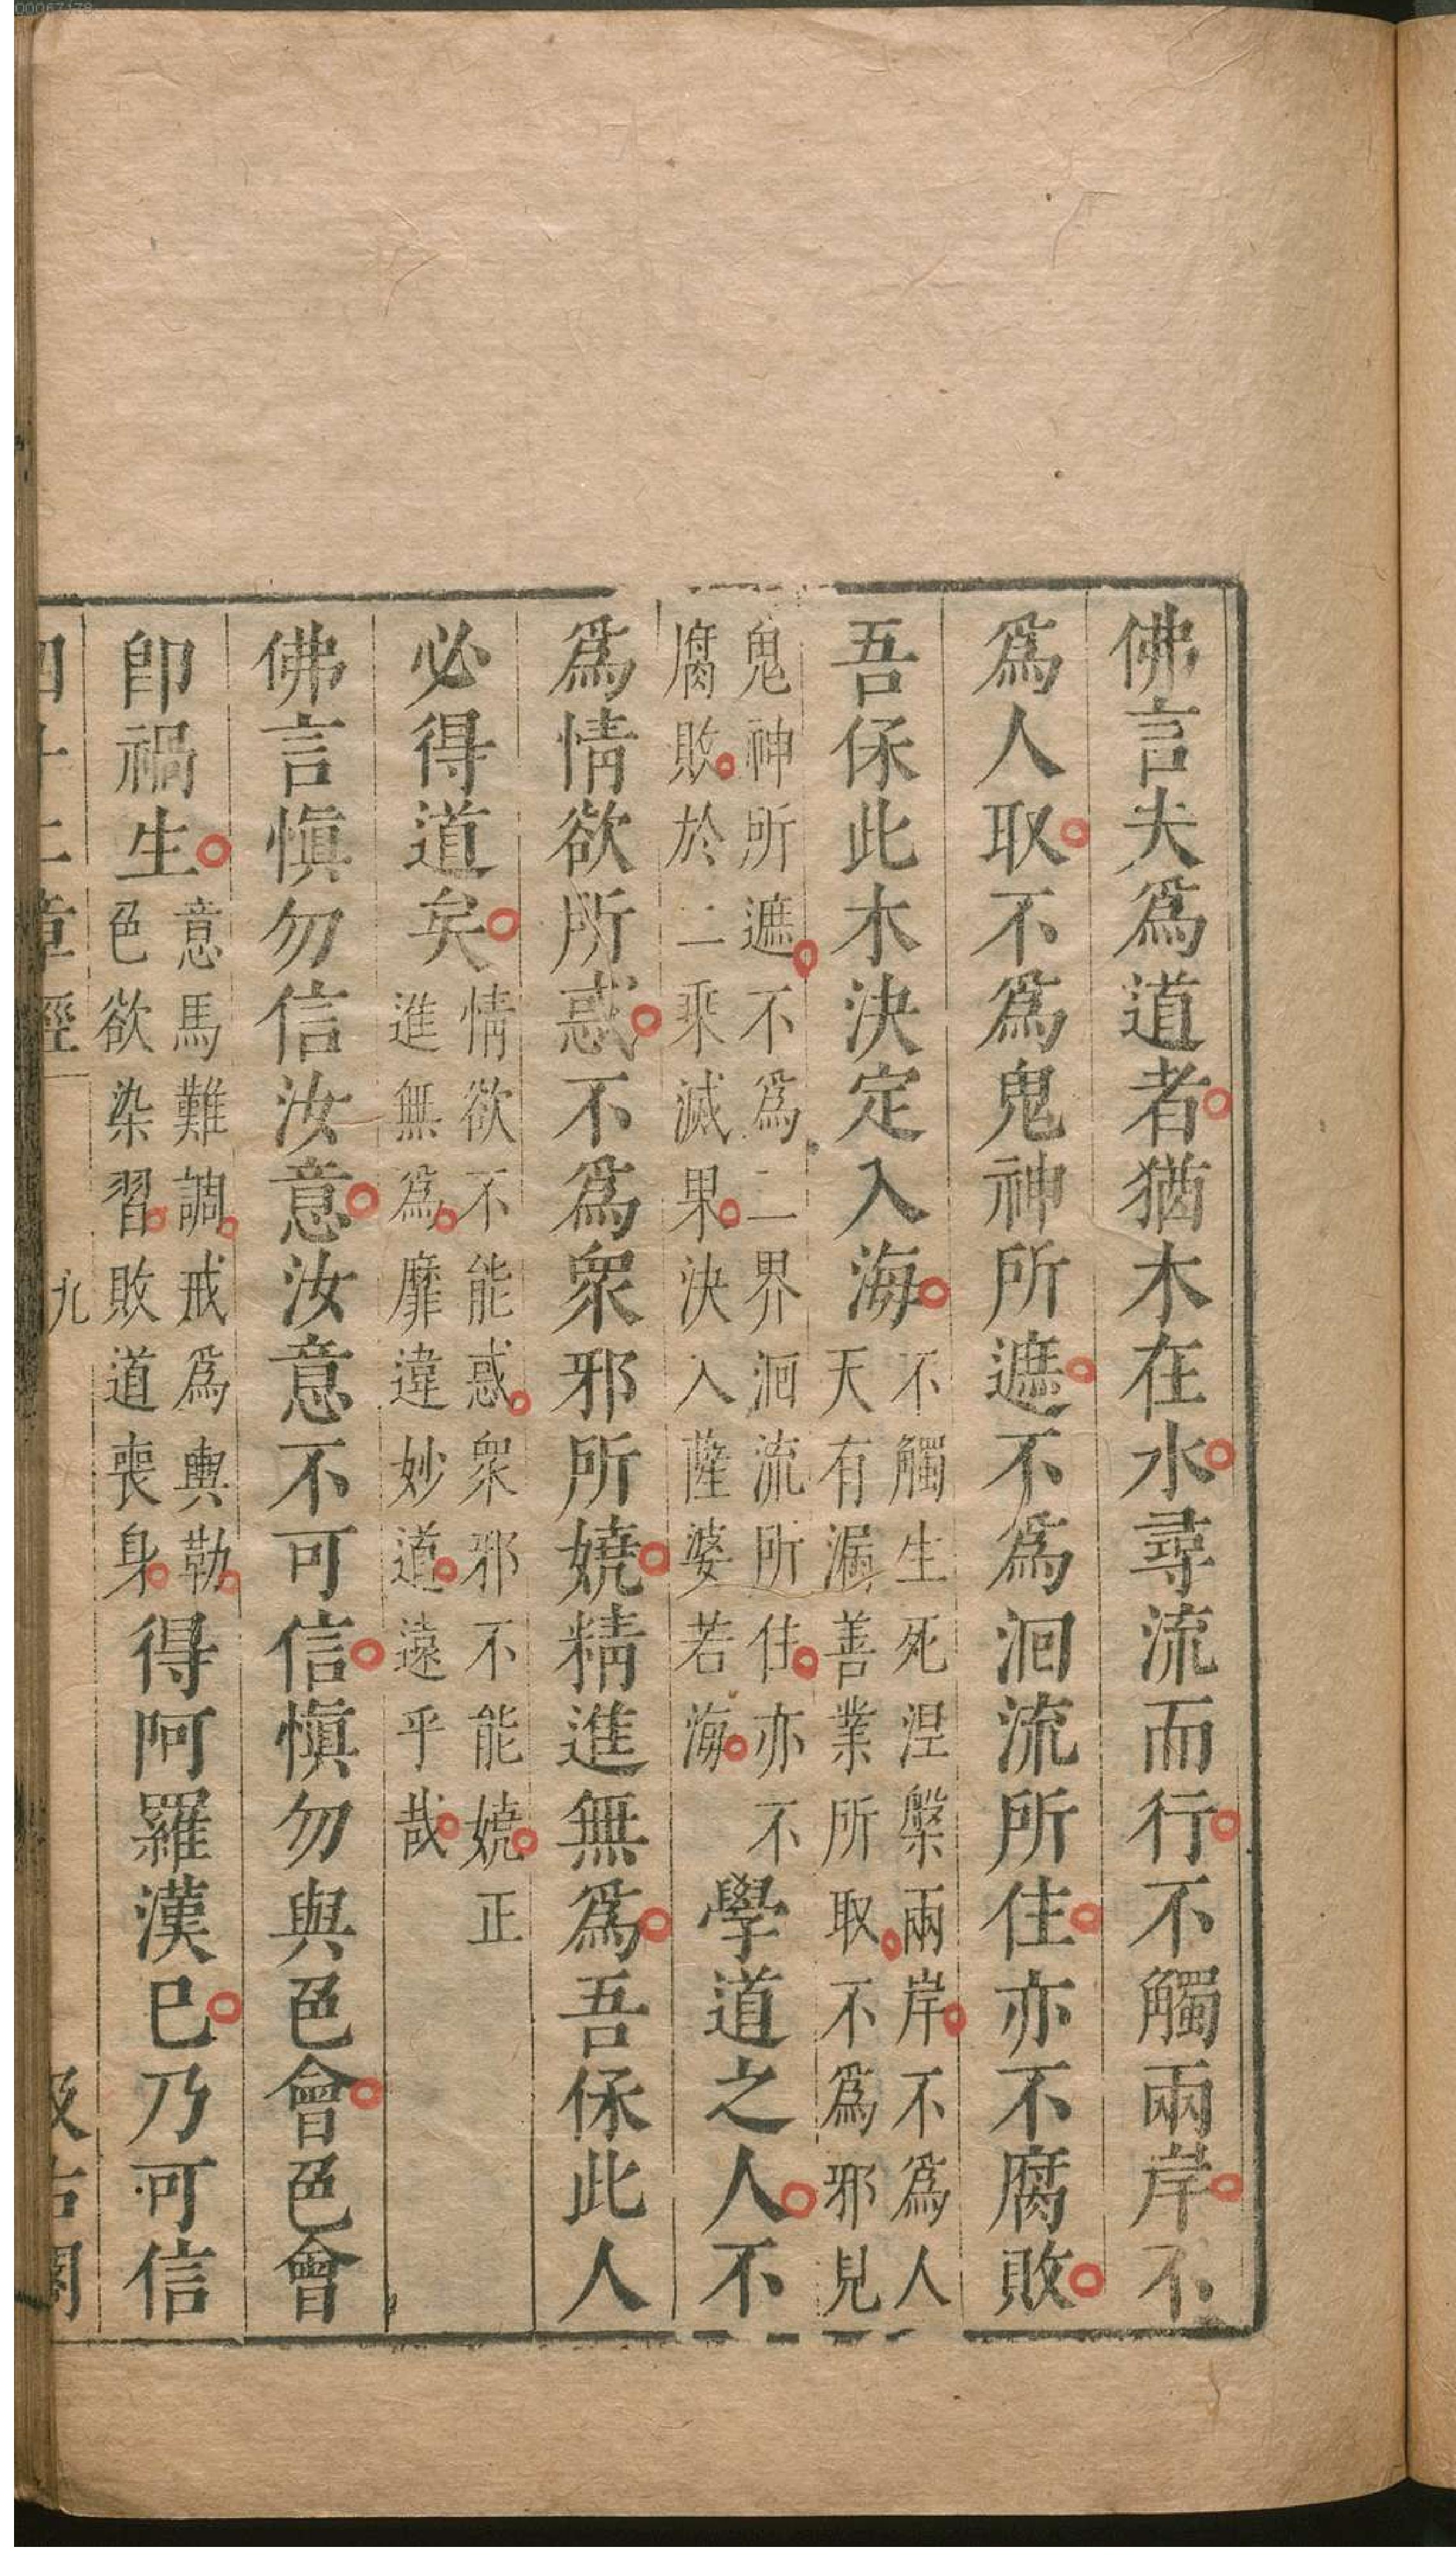 佛言夫為道者猶木在水尋流而行不觸兩岸不
為人取不為鬼神所遮不為洄流所住亦不腐敗
吾保此木決定入海
不觸生死涅槃兩岸不為人
天有漏善業所取不為邪見
鬼神所遮不為二界洄流所住亦不
腐敗於二乘滅果決入薩婆若海
學道之人不
為情欲所惑不為衆邪所嬈精進無為吾保此人
必得道矣
情欲不能惑衆邪不能嬈正
進無為靡違妙道遠乎哉
佛言慎勿信汝意汝意不可信慎勿與色會色會
即禍生
意馬難調戒為輿勒
色欲染習敗道喪身
得阿羅漢巳乃可信
四十二章經
九
汲古閣
00067178